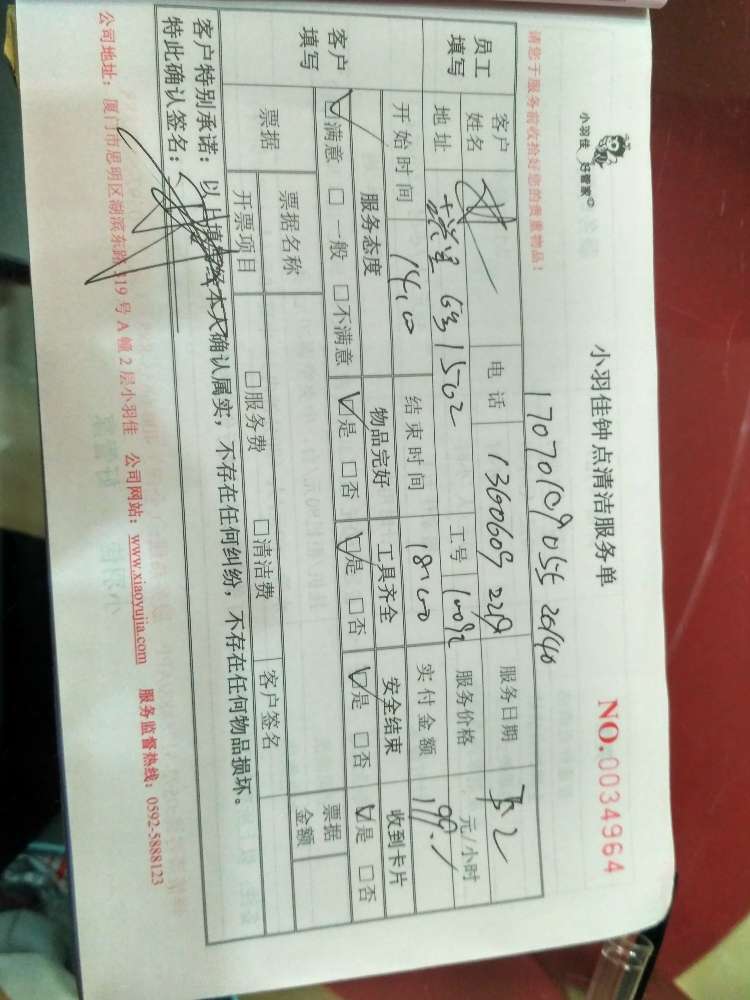 小羽佳 好管家
小羽佳钟点清洁服务单
NO.0034964
请您于服务前收拾好您的贵重物品!
员工填写
客户姓名
电话
服务日期
地址 631502
工号
服务价格 元/小时
开始时间
结束时间
实付金额
客户填写
服务态度 物品完好 工具齐全 安全结束 收到卡片
☑满意 □一般 □不满意 ☑是 □否 ☑是 □否 ☑是 □否 ☑是 □否
票据 票据名称 客户签名 票据金额
开票项目 □服务费 □清洁费
客户特别承诺:以上填写经本人确认属实,不存在任何纠纷,不存在任何物品损坏。
特此确认签名:
公司地址:厦门市思明区湖滨东路319号A幢2层小羽佳 公司网站:www.xiaoyujia.com 服务监督热线:0592-5888123